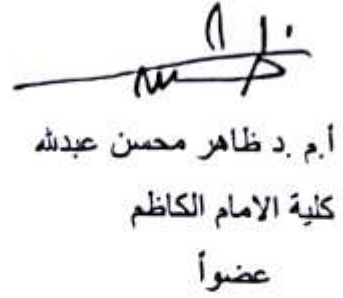 أ.م .د ظاهر محسن عبدلله
كلية الامام الكاظم
عضواً